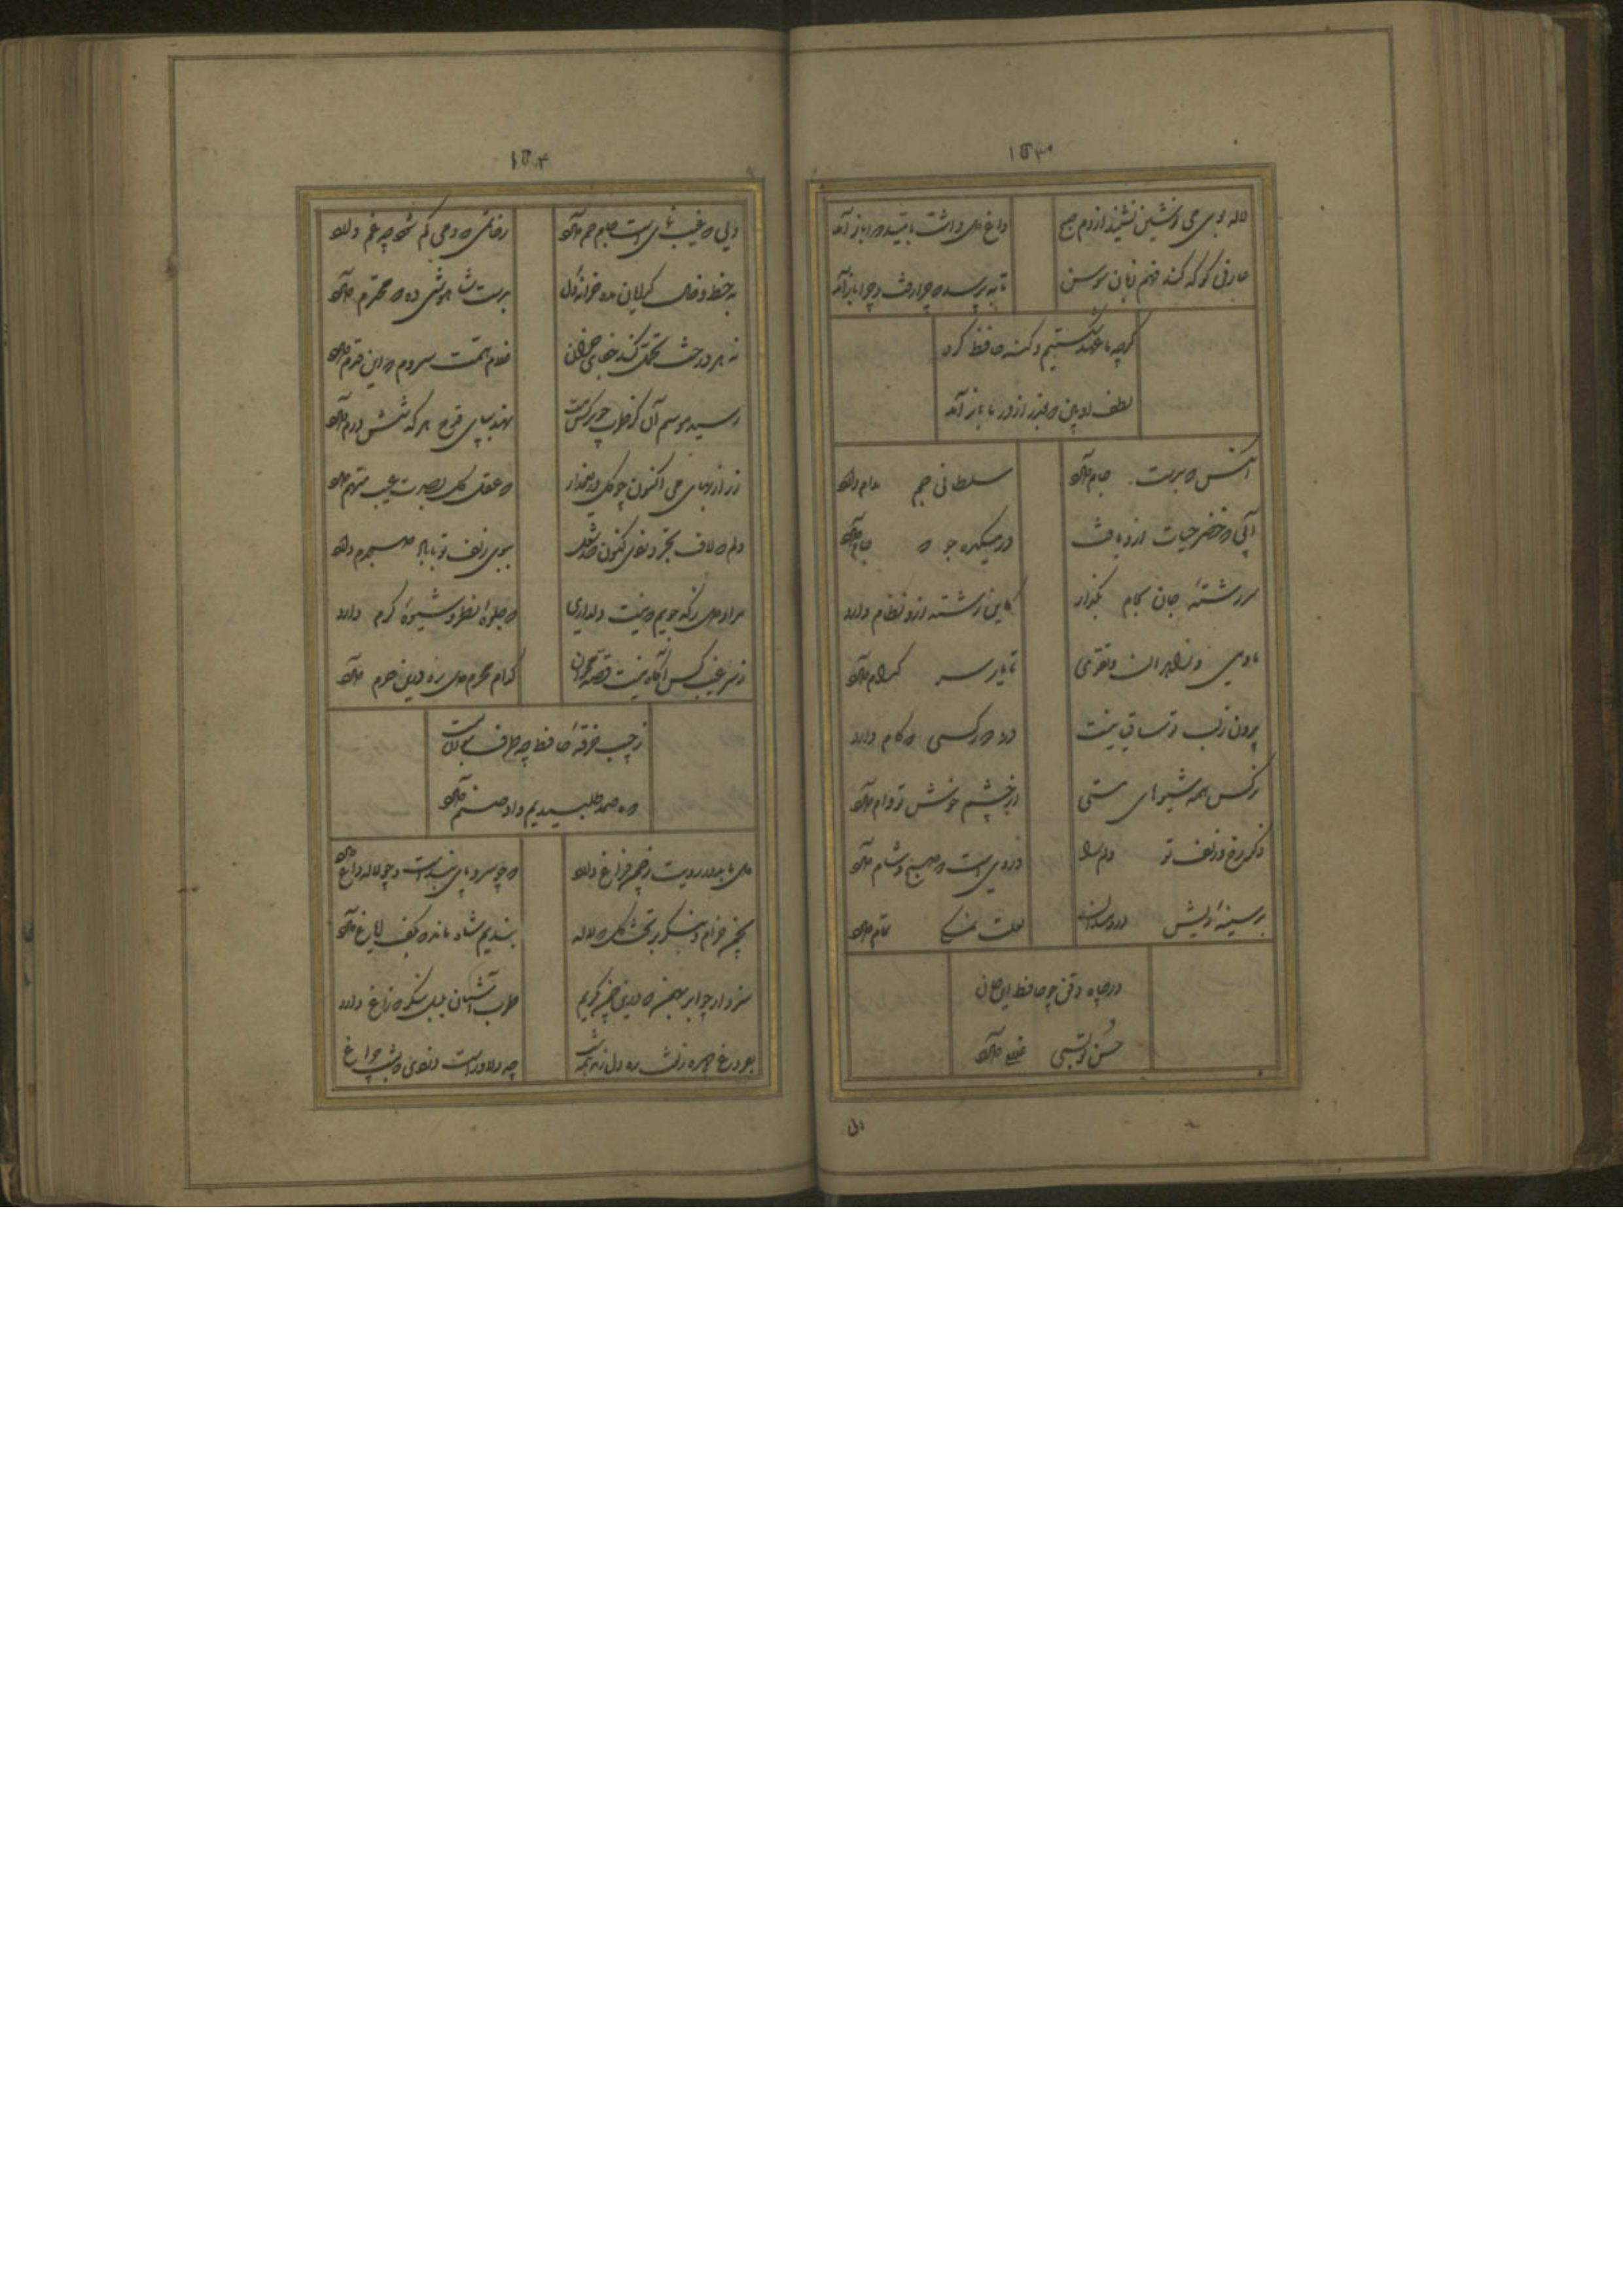 ۱۵۳
لاله بوی می نوشین بشنید از دم صبح داغ دل داشت بامید دوا باز آمد
عارفی کو که کند فهم زبان سوسن تا به پرسد که چرا رفت و چرا باز آمد
گرچه ما عهد شکستیم و گنه حافظ کرد
لطف او بین که از در ما باز آمد
آنکس که بدست جام دارد سلطانی جم مدام دارد
آبی که خضر حیات ازو یافت در میکده جو که جام دارد
سررشتهٔ جان بجام بگذار کاین رشته ازو نظام دارد
ما و می و زاهدان و تقوی تا یار سر کدام دارد
بیرون ز لب تو ساقیا نیست در دور کسی که کام دارد
نرگس همه شیوهای مستی از چشم خوشت بوام دارد
ذکر رخ و زلف تو دلم را وردی است که صبح و شام دارد
بر سینهٔ ریش دردمندان لعلت نمکی تمام دارد
در چاه ذقن چو حافظ ای جان
حسن تو غلام دارد
دلی
۱۵۴
دلی که غیب نمای است جام جم دارد ز خاتمی که دمی گم شود چه غم دارد
به خط و خال گدایان مده خزانهٔ دل بدست شاهوشی ده که محترم دارد
نه هر درخت تحمل کند جفای خزان غلام همت سروم که این قدم دارد
رسید موسم آن کز طرب چو نرگس مست نهد بپای قدح هر که شش درم دارد
زر از بهای می اکنون چو گل دریغ مدار که عقل کل بصدت عیب متهم دارد
دلم که لاف تجرد زدی کنون صد شغل ببوی زلف تو با باد صبحدم دارد
مراد دل ز که جویم که نیست دلداری که جلوهٔ نظر و شیوهٔ کرم دارد
ز سر غیب کس آگاه نیست قصه مخوان کدام محرم دل ره درین حرم دارد
ز جیب خرقهٔ حافظ چه طرف بتوان بست
که ما صمد طلبیدیم و او صنم دارد
دل ما بدور رویت ز چمن فراغ دارد که چو سرو پای بندست و چو لاله داغ دارد
بچمن خرام و بنگر بر تخت گل که لاله بندیم شاه ماند که بکف ایاغ دارد
سزد ار چو ابر بهمن که درین چمن گریم طرب آشیان بلبل بنگر که زاغ دارد
بفروغ چهره زلفت ره دل زند همه شب چه دلاورست دزدی که بشب چراغ